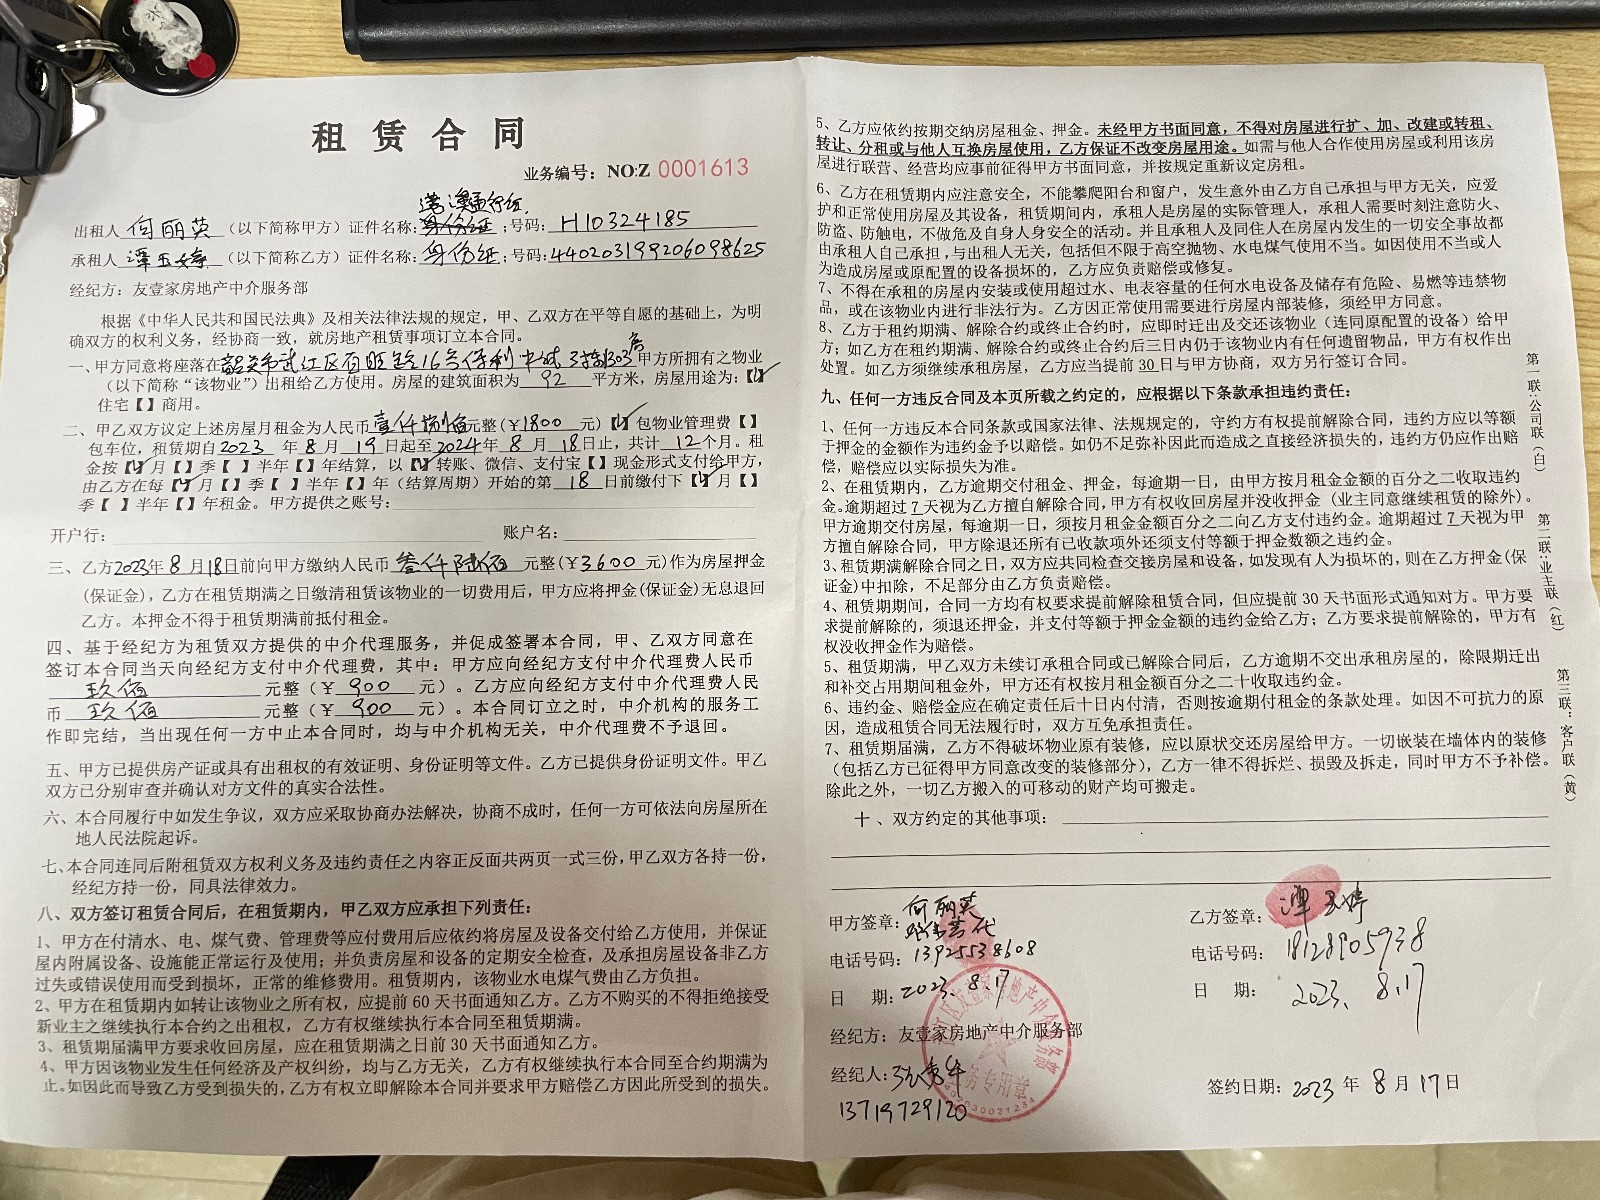 租赁合同
业务编号：NO:Z 0001613
港澳通行证
出租人 何丽英 （以下简称甲方）证件名称：身份证；号码：H10324185
承租人 谭玉婷 （以下简称乙方）证件名称：身份证；号码：440203199206098625
经纪方：友壹家房地产中介服务部
根据《中华人民共和国民法典》及相关法律法规的规定，甲、乙双方在平等自愿的基础上，为明
确双方的权利义务，经协商一致，就房地产租赁事项订立本合同。
一、甲方同意将座落在韶关市武江区百旺路16号保利中城3栋303房甲方所拥有之物业
（以下简称“该物业”）出租给乙方使用。房屋的建筑面积为 92 平方米，房屋用途为：【√】
住宅【 】商用。
二、甲乙双方议定上述房屋月租金为人民币壹仟捌佰元整(￥1800 元)【√】包物业管理费【 】
包车位，租赁期自2023 年 8 月 19 日起至2024年 8 月 18日止，共计 12 个月。租
金按【√】月【 】季【 】半年【 】年结算，以【√】转账、微信、支付宝【 】现金形式支付给甲方，
由乙方在每【√】月【 】季【 】半年【 】年（结算周期）开始的第 18 日前缴付下【√】月【 】
季【 】半年【 】年租金。甲方提供之账号：
开户行： 账户名：
三、乙方2023年 8 月 18日前向甲方缴纳人民币 叁仟陆佰 元整(￥3600 元)作为房屋押金
(保证金)，乙方在租赁期满之日缴清租赁该物业的一切费用后，甲方应将押金(保证金)无息退回
乙方。本押金不得于租赁期满前抵付租金。
四、基于经纪方为租赁双方提供的中介代理服务，并促成签署本合同，甲、乙双方同意在
签订本合同当天向经纪方支付中介代理费，其中：甲方应向经纪方支付中介代理费人民币
玖佰 元整（￥ 900 元）。乙方应向经纪方支付中介代理费人民
币 玖佰 元整（￥ 900 元）。本合同订立之时，中介机构的服务工
作即完结，当出现任何一方中止本合同时，均与中介机构无关，中介代理费不予退回。
五、甲方已提供房产证或具有出租权的有效证明、身份证明等文件。乙方已提供身份证明文件。甲乙
双方已分别审查并确认对方文件的真实合法性。
六、本合同履行中如发生争议，双方应采取协商办法解决，协商不成时，任何一方可依法向房屋所在
地人民法院起诉。
七、本合同连同后附租赁双方权利义务及违约责任之内容正反面共两页一式三份，甲乙双方各持一份，
经纪方持一份，同具法律效力。
八、双方签订租赁合同后，在租赁期内，甲乙双方应承担下列责任：
1、甲方在付清水、电、煤气费、管理费等应付费用后应依约将房屋及设备交付给乙方使用，并保证
屋内附属设备、设施能正常运行及使用；并负责房屋和设备的定期安全检查，及承担房屋设备非乙方
过失或错误使用而受到损坏，正常的维修费用。租赁期内，该物业水电煤气费由乙方负担。
2、甲方在租赁期内如转让该物业之所有权，应提前 60 天书面通知乙方。乙方不购买的不得拒绝接受
新业主之继续执行本合约之出租权，乙方有权继续执行本合同至租赁期满。
3、租赁期届满甲方要求收回房屋，应在租赁期满之日前 30 天书面通知乙方。
4、甲方因该物业发生任何经济及产权纠纷，均与乙方无关，乙方有权继续执行本合同至合约期满为
止。如因此而导致乙方受到损失的，乙方有权立即解除本合同并要求甲方赔偿乙方因此所受到的损失。
5、乙方应依约按期交纳房屋租金、押金。未经甲方书面同意，不得对房屋进行扩、加、改建或转租、
转让、分租或与他人互换房屋使用，乙方保证不改变房屋用途。如需与他人合作使用房屋或利用该房
屋进行联营、经营均应事前征得甲方书面同意，并按规定重新议定房租。
6、乙方在租赁期内应注意安全，不能攀爬阳台和窗户，发生意外由乙方自己承担与甲方无关，应爱
护和正常使用房屋及其设备，租赁期间内，承租人是房屋的实际管理人，承租人需要时刻注意防火、
防盗、防触电，不做危及自身人身安全的活动。并且承租人及同住人在房屋内发生的一切安全事故都
由承租人自己承担，与出租人无关，包括但不限于高空抛物、水电煤气使用不当。如因使用不当或人
为造成房屋或原配置的设备损坏的，乙方应负责赔偿或修复。
7、不得在承租的房屋内安装或使用超过水、电表容量的任何水电设备及储存有危险、易燃等违禁物
品，或在该物业内进行非法行为。乙方因正常使用需要进行房屋内部装修，须经甲方同意。
8、乙方于租约期满、解除合约或终止合约时，应即时迁出及交还该物业（连同原配置的设备）给甲
方；如乙方在租约期满、解除合约或终止合约后三日内仍于该物业内有任何遗留物品，甲方有权作出
处置。如乙方须继续承租房屋，乙方应当提前 30 日与甲方协商，双方另行签订合同。
九、任何一方违反合同及本页所载之约定的，应根据以下条款承担违约责任：
1、任何一方违反本合同条款或国家法律、法规规定的，守约方有权提前解除合同，违约方应以等额
于押金的金额作为违约金予以赔偿。如仍不足弥补因此而造成之直接经济损失的，违约方仍应作出赔
偿，赔偿应以实际损失为准。
2、在租赁期内，乙方逾期交付租金、押金，每逾期一日，由甲方按月租金金额的百分之二收取违约
金。逾期超过 7 天视为乙方擅自解除合同，甲方有权收回房屋并没收押金（业主同意继续租赁的除外）。
甲方逾期交付房屋，每逾期一日，须按月租金金额百分之二向乙方支付违约金。逾期超过 7 天视为甲
方擅自解除合同，甲方除退还所有已收款项外还须支付等额于押金数额之违约金。
3、租赁期满解除合同之日，双方应共同检查交接房屋和设备，如发现有人为损坏的，则在乙方押金(保
证金)中扣除，不足部分由乙方负责赔偿。
4、租赁期期间，合同一方均有权要求提前解除租赁合同，但应提前 30 天书面形式通知对方。甲方要
求提前解除的，须退还押金，并支付等额于押金金额的违约金给乙方；乙方要求提前解除的，甲方有
权没收押金作为赔偿。
5、租赁期满，甲乙双方未续订承租合同或已解除合同后，乙方逾期不交出承租房屋的，除限期迁出
和补交占用期间租金外，甲方还有权按月租金额百分之二十收取违约金。
6、违约金、赔偿金应在确定责任后十日内付清，否则按逾期付租金的条款处理。如因不可抗力的原
因，造成租赁合同无法履行时，双方互免承担责任。
7、租赁期届满，乙方不得破坏物业原有装修，应以原状交还房屋给甲方。一切嵌装在墙体内的装修
（包括乙方已征得甲方同意改变的装修部分），乙方一律不得拆烂、损毁及拆走，同时甲方不予补偿。
除此之外，一切乙方搬入的可移动的财产均可搬走。
十、双方约定的其他事项：
甲方签章：何丽英
电话号码：13925538608
日 期：2023、8.17
经纪方：友壹家房地产中介服务部
经纪人：
13719729120
乙方签章：谭玉婷
电话号码：18128905938
日 期：2023、8.17
签约日期：2023 年 8 月 17 日
业务专用章
第一联：公司联（白）
第二联：业主联（红）
第三联：客户联（黄）